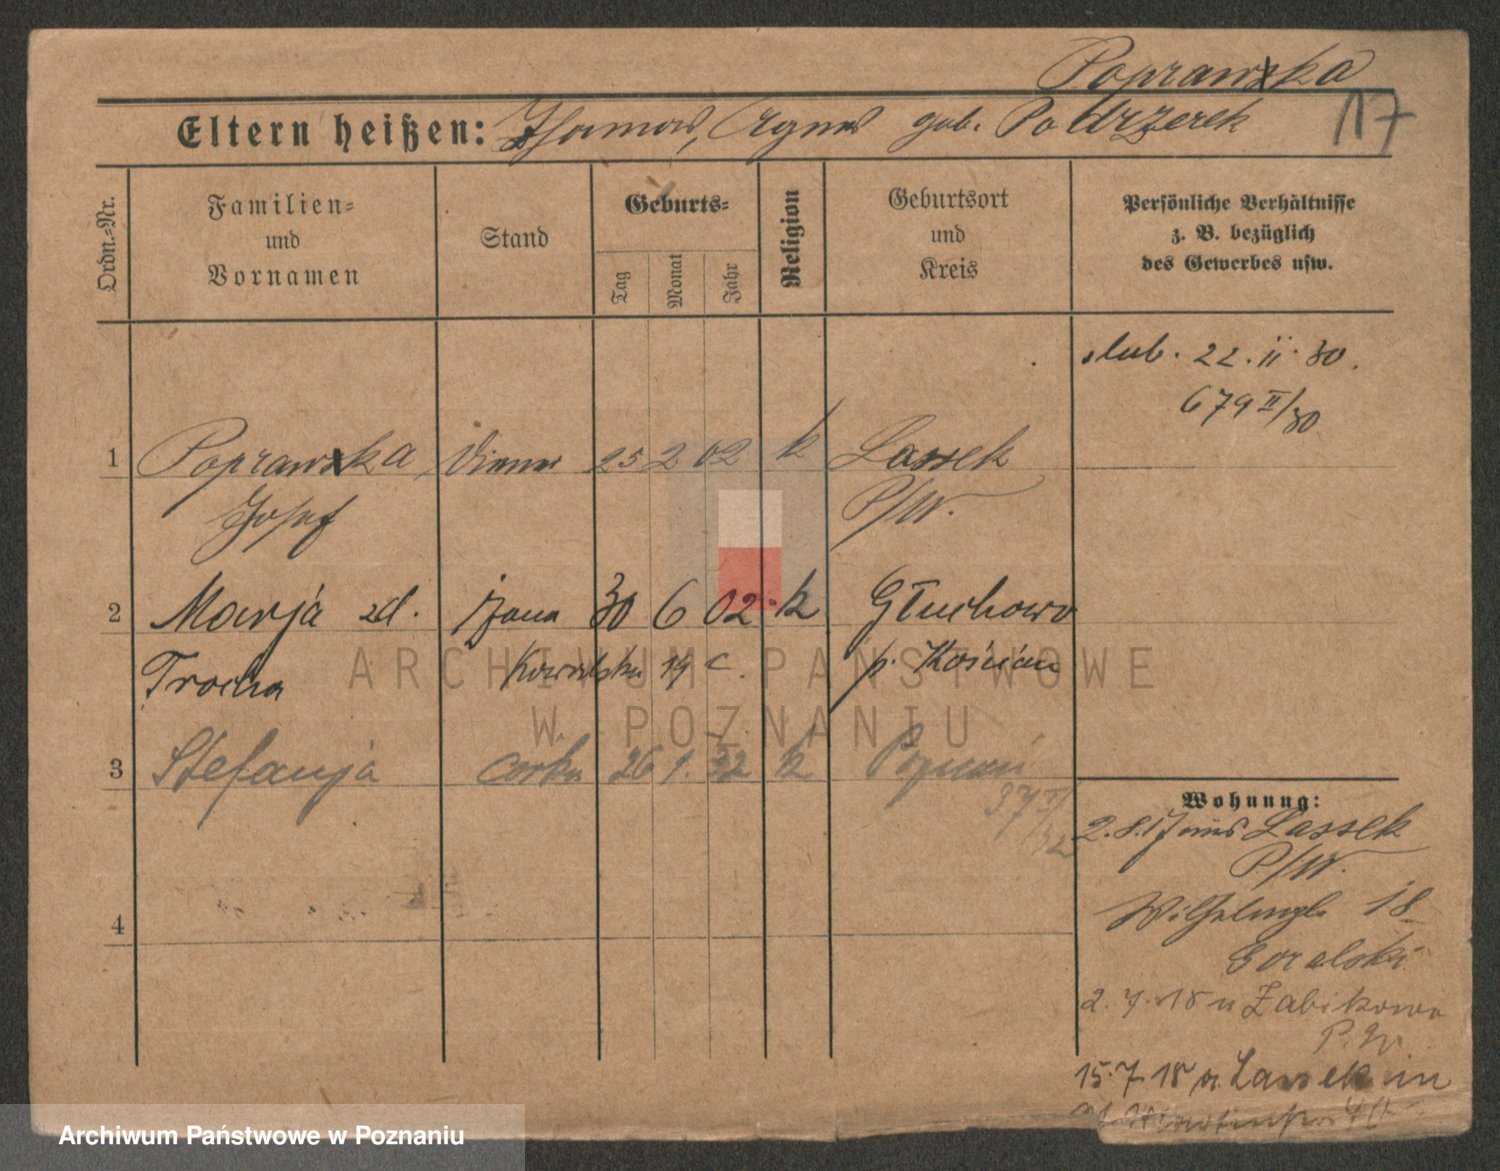 Poprawska
17
Eltern heißen: Thomas, Agnes geb. Podrzerek
Ordn.-Nr.
Familien-
und
Vornamen
Stand
Geburts-
Tag
Monat
Jahr
Religion
Geburtsort
und
Kreis
Persönliche Verhältnisse
z. B. bezüglich
des Gewerbes usw.
slub. 22. II. 30.
679 II/30
1 Poprawska Diener 25 2 02 k Lassek
Josef P/W.
2 Marja zd. żona 30 6 02 k Głuchowo
Trocha Kowalska 19 p. Kościan
3 Stefanja córka 26 1. 32 k Poznań
37 I/32
4
Wohnung:
2. 8. 17 aus Lassek
P/W.
18
Goralski
2. 7. 18 n Zabikowo
15. 7. 18 n. Lassek
ARCHIWUM PAŃSTWOWE
W POZNANIU
Archiwum Państwowe w Poznaniu